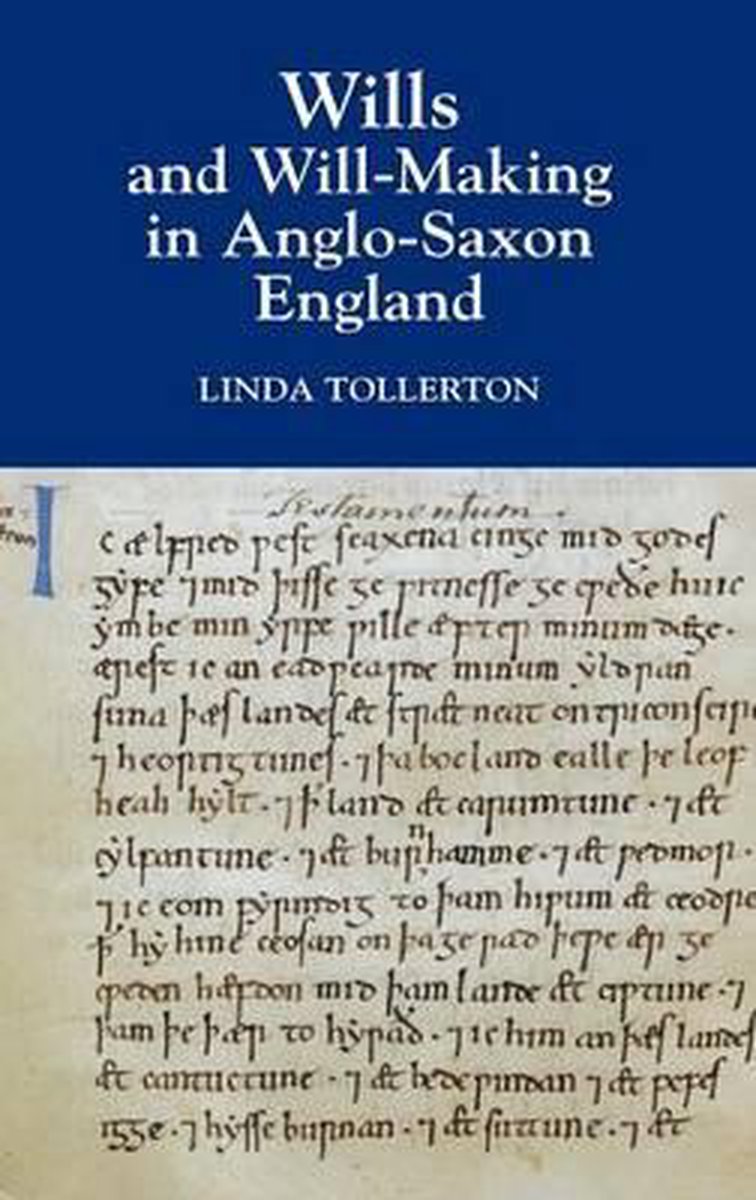 Wills
and Will-Making
in Anglo-Saxon
England
LINDA TOLLERTON
Testamentum.
Ic ælfred ƿest seaxena cinge mid godes
gyfe ⁊ mid þisse ge ƿitnesse ge cƿeðe hu ic
ymbe min yrfe ƿille æfter minum dæge.
ærest ic an eadƿearde minum yldran
suna þæs landes æt strætneat on triconscir
⁊ heortigtunes. ⁊ þa bocland ealle þe leof
heah hylt. ⁊ ꝥ land æt carumtune. ⁊ æt
cylfantune. ⁊ æt burnhamme. ⁊ æt ƿedmor.
⁊ ic eom fyrmdig to þam hiƿum æt ceodre
ꝥ hy hine ceosan on þa gerad þe ƿe ær ge
cƿeden hæfdon mid þam lande æt ciƿtune. ⁊
þam þe þær to hyrað. ⁊ ic him an þæs landes
æt cantuctune. ⁊ æt bedeƿindan ⁊ æt pefes
igge. ⁊ hysse burnan. ⁊ æt suttune. ⁊ æt